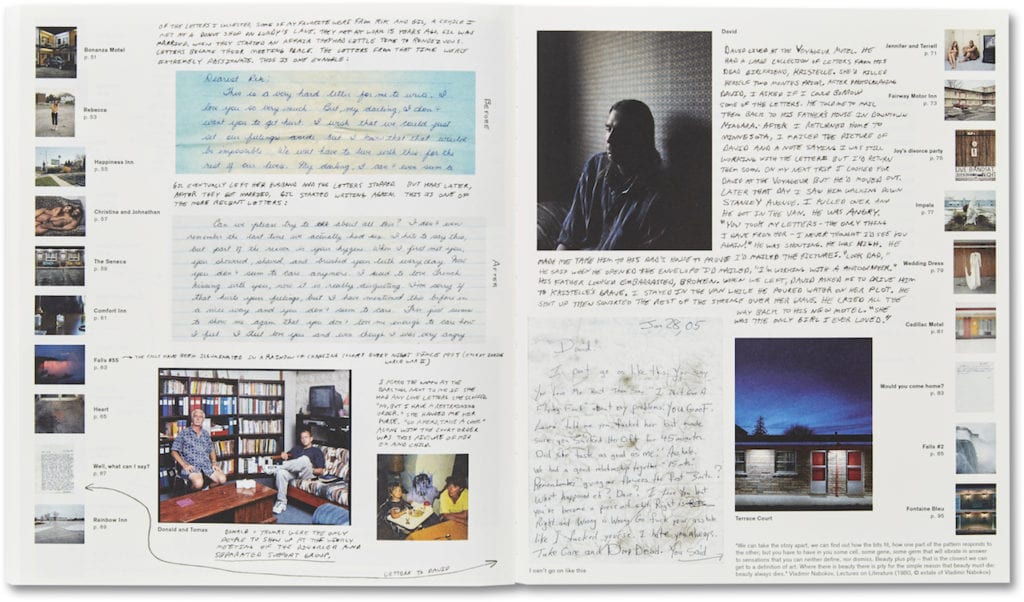 Bonanza Motel
p. 51
Rebecca
p. 53
Happiness Inn
p. 55
Christina and Johnathan
p. 57
The Seneca
p. 59
Comfort Inn
p. 61
Falls #35
p. 63
Heart
p. 65
Well, what can I say?
p. 67
Rainbow Inn
p. 69
OF THE LETTERS I COLLECTED SOME OF MY FAVORITE WERE FROM RIK AND GIL, A COUPLE I
MET AT A DONUT SHOP ON LUNDY'S LANE. THEY MET AT WORK 15 YEARS AGO. GIL WAS
MARRIED. WHEN THEY STARTED AN AFFAIR THEY HAD LITTLE TIME TO RENDEZVOUS.
LETTERS BECAME THEIR MEETING PLACE. THE LETTERS FROM THAT TIME WERE
EXTREMELY PASSIONATE. THIS IS ONE EXAMPLE:
Dearest Rik:
This is a very hard letter for me to write. I
love you so very much. But, my darling, I don't
want you to get hurt. I wish that we could just
set our feelings aside but I know that that would
be impossible. We will have to live with this for the
rest of our lives. My darling, I can't even seem to
BEFORE
GIL EVENTUALLY LEFT HER HUSBAND AND THE LETTERS STOPPED. BUT YEARS LATER,
AFTER THEY GOT MARRIED, GIL STARTED WRITING AGAIN. THIS IS ONE OF
THE MORE RECENT LETTERS:
Can we please try to talk about all this? I don't even
remember the last time we actually had sex. I hate to say this,
but part of the reason is your hygiene. When I first met you,
you showered, shaved, and brushed your teeth every day. Now
you don't seem to care anymore. I used to love french
kissing with you, now it is really disgusting. I'm sorry if
that hurts your feelings, but I have mentioned this before in
a nice way and you don't seem to care. This just seems
to show me again that you don't love me enough to care how
I feel. I still love you and even though I was very angry
AFTER
THE FALLS HAVE BEEN ILLUMINATED IN A RAINBOW OF CHANGING COLORS EVERY NIGHT SINCE 1925 (EXCEPT DURING
WORLD WAR II)
I ASKED THE WOMAN AT THE
BARSTOOL NEXT TO ME IF SHE
HAD ANY LOVE LETTERS. SHE
"NO, BUT I HAVE A RESTRAINING
ORDER." SHE HANDED ME HER
PURSE. "GO AHEAD, TAKE A LOOK."
ALONG WITH THE COURT ORDER
WAS THIS PICTURE OF HER
EX AND CHILD.
Donald and Tomas
DONALD & THOMAS WERE THE ONLY
PEOPLE TO SHOW UP AT THE WEEKLY
MEETING OF THE DIVORCED AND
SEPARATED SUPPORT GROUP.
LETTERS TO DAVID
David
DAVID LIVED AT THE VOYAGEUR MOTEL. HE
HAD A LARGE COLLECTION OF LETTERS FROM HIS
DEAD GIRLFRIEND, KRISTELLE. SHE'D KILLED
HERSELF TWO MONTHS PRIOR. AFTER PHOTOGRAPHING
DAVID, I ASKED IF I COULD BORROW
SOME OF THE LETTERS. HE TOLD ME TO MAIL
THEM BACK TO HIS FATHER'S HOUSE IN DOWNTOWN
NIAGARA. AFTER I RETURNED HOME TO
MINNESOTA, I MAILED THE PICTURE OF
DAVID AND A NOTE SAYING I WAS STILL
WORKING WITH THE LETTERS BUT I'D RETURN
THEM SOON. ON MY NEXT TRIP I LOOKED FOR
DAVID AT THE VOYAGEUR BUT HE'D MOVED OUT.
LATER THAT DAY I SAW HIM WALKING DOWN
STANLEY AVENUE. I PULLED OVER AND
HE GOT IN THE VAN. HE WAS ANGRY.
"YOU TOOK MY LETTERS - THE ONLY THING
I HAVE FROM HER - I NEVER THOUGHT I'D SEE YOU
AGAIN!" HE WAS SHOUTING. HE WAS HIGH. HE
MADE ME TAKE HIM TO HIS DAD'S HOUSE TO PROVE I'D MAILED THE PICTURES. "LOOK DAD,"
HE SAID WHEN HE OPENED THE ENVELOPE I'D MAILED, "I'M WORKING WITH A PHOTOGRAPHER."
HIS FATHER LOOKED EMBARRASSED, BROKEN. WHEN WE LEFT, DAVID ASKED ME TO DRIVE HIM
TO KRISTELLE'S GRAVE. I STAYED IN THE VAN WHILE HE POURED WATER ON HER PLOT. HE
SHOT UP THEN SQUIRTED THE REST OF THE SYRINGE OVER HER GRAVE. HE CRIED ALL THE
WAY BACK TO HIS NEW MOTEL. "SHE
WAS THE ONLY GIRL I EVER LOVED."
Jan 28 05
David:
I can't go on like this. You say
You Love Me But Then Say I Don't Give A
Flying Fuck about my problems. You Goof.
told me You fucked her but made
sure you for 45 minutes.
Did she fuck as good as me? Asshole.
We had a good relationship together
Remember giving me flowers the first
What happened eh? Dave? I love you but
you've become a
Right and Wrong is Wrong Go fuck your asshole
like I fucked yours. I hate you Always.
Take Care and Drop Dead. You Said
I can't go on like this
Terrace Court
Jennifer and Terrell
p. 71
Fairway Motor Inn
p. 73
Joy's divorce party
p. 75
LIVE BAND SAT
Impala
p. 77
Wedding Dress
p. 79
Cadillac Motel
p. 81
Would you come home?
p. 83
Falls #2
p. 85
Fontaine Bleu
p. 95
"We can take the story apart, we can find out how the bits fit, how one part of the pattern responds to
the other; but you have to have in you some cell, some gene, some germ that will vibrate in answer
to sensations that you can neither define, nor dismiss. Beauty plus pity – that is the closest we can
get to a definition of art. Where there is beauty there is pity for the simple reason that beauty must die:
beauty always dies." Vladimir Nabokov, Lectures on Literature (1980, © estate of Vladimir Nabokov)